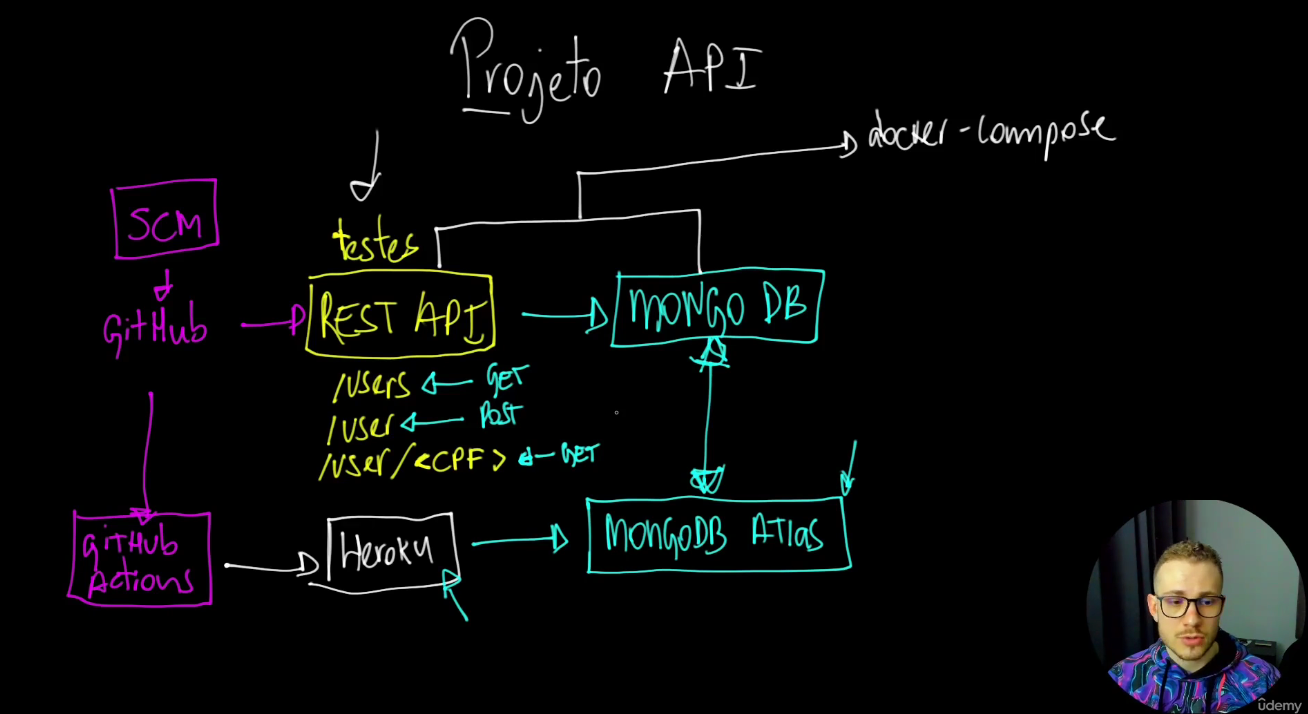 Projeto API
docker-compose
SCM
testes
GitHub
REST API
MONGO DB
/users GET
/user POST
/user/<CPF> GET
GitHub
Actions
Heroku
MONGODB Atlas
ûdemy